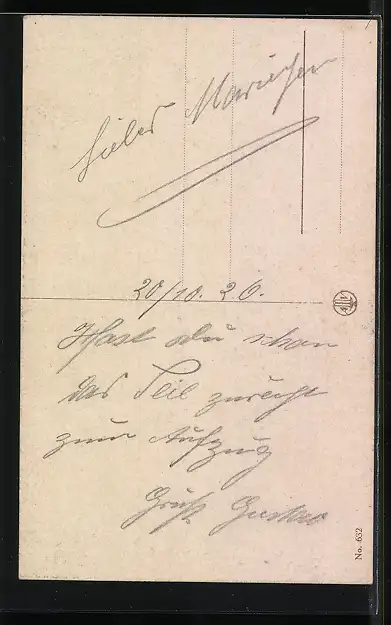 Lieber Mariechen
20/10. 26.
Hast du schon
das Seil zurecht
zum Aufzug
Gruß Gustav
No. 632